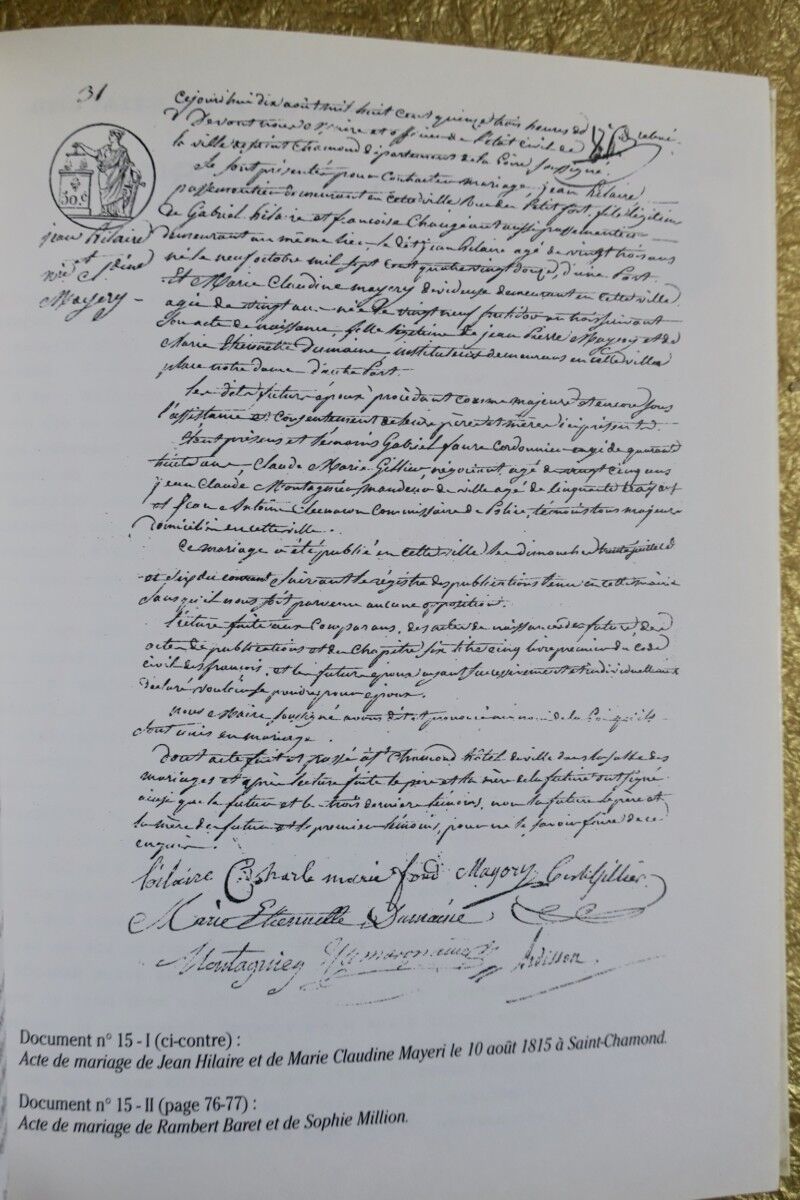 31
Cejourd'hui dix août mil huit cent quinze à trois heures du
Devant nous Maire et officier de l'état civil de
la ville de Saint Chamond département de la Loire soussigné
Se sont présentés pour contracter mariage jean hilaire
passementier demeurant en cette ville Rue du Petit fort, fils légitime
de Gabriel hilaire et françoise aussi passementiers
demeurant au même lieu, le dit jean hilaire agé de vingt trois ans
né le neuf octobre mil sept cent quatre vingt douze, d'une Part
Et Marie Claudine mayery devideuse demeurant en cette ville
agée de vingt ans née le vingt neuf suivant
Son acte de naissance, fille légitime de jean Pierre Mayery et de
Marie Etiennette Dumaine, instituteurs demeurans en cette ville
place notre dame d'autre Part.
50.c
jean hilaire
et
Mayery
Les dits futurs époux procédant comme majeurs et encore sous
l'assistance et consentement de leurs pères et mères ici présents
Etant présens et témoins Gabriel faure Cordonnier agé de quarante
huit ans, Claude Marie Gillier négociant, agé de vingt cinq ans
jean Claude Montagnier mandeur de ville agé de cinquante
et Antoine Commissaire de Police, témoins tous majeurs
Domiciliés en cette ville.
Ce mariage a été publié en cette ville les dimanches trente juillet
et six du courant Suivant le régistre des publications tenu en cette mairie
Sans qu'il nous soit parvenu aucune opposition.
Lecture faite aux Comparans, des actes de naissance des futurs, des
actes de publications et du Chapitre six titre cinq livre premier du code
civil des françois, et les futurs époux ayant successivement et individuellement
déclaré vouloir se prendre pour époux.
nous Maire, soussigné avons dit et prononcé au nom de la Loi qu'ils
sont unis en mariage.
Dont acte fait et passé à St Chamond hôtel de ville dans la salle des
mariages et après lecture faite le père et la mère de la future ont signé
ainsi que le futur et les trois derniers témoins, non la future le père et
la mère du futur et le premier témoin, pour ne le savoir faire de ce
enquis.
hilaire Mayery Gillier
Marie Etiennette Dumaine
Montagnier Ardisson
Document n° 15 - I (ci-contre) :
Acte de mariage de Jean Hilaire et de Marie Claudine Mayeri le 10 août 1815 à Saint-Chamond.
Document n° 15 - II (page 76-77) :
Acte de mariage de Rambert Baret et de Sophie Million.